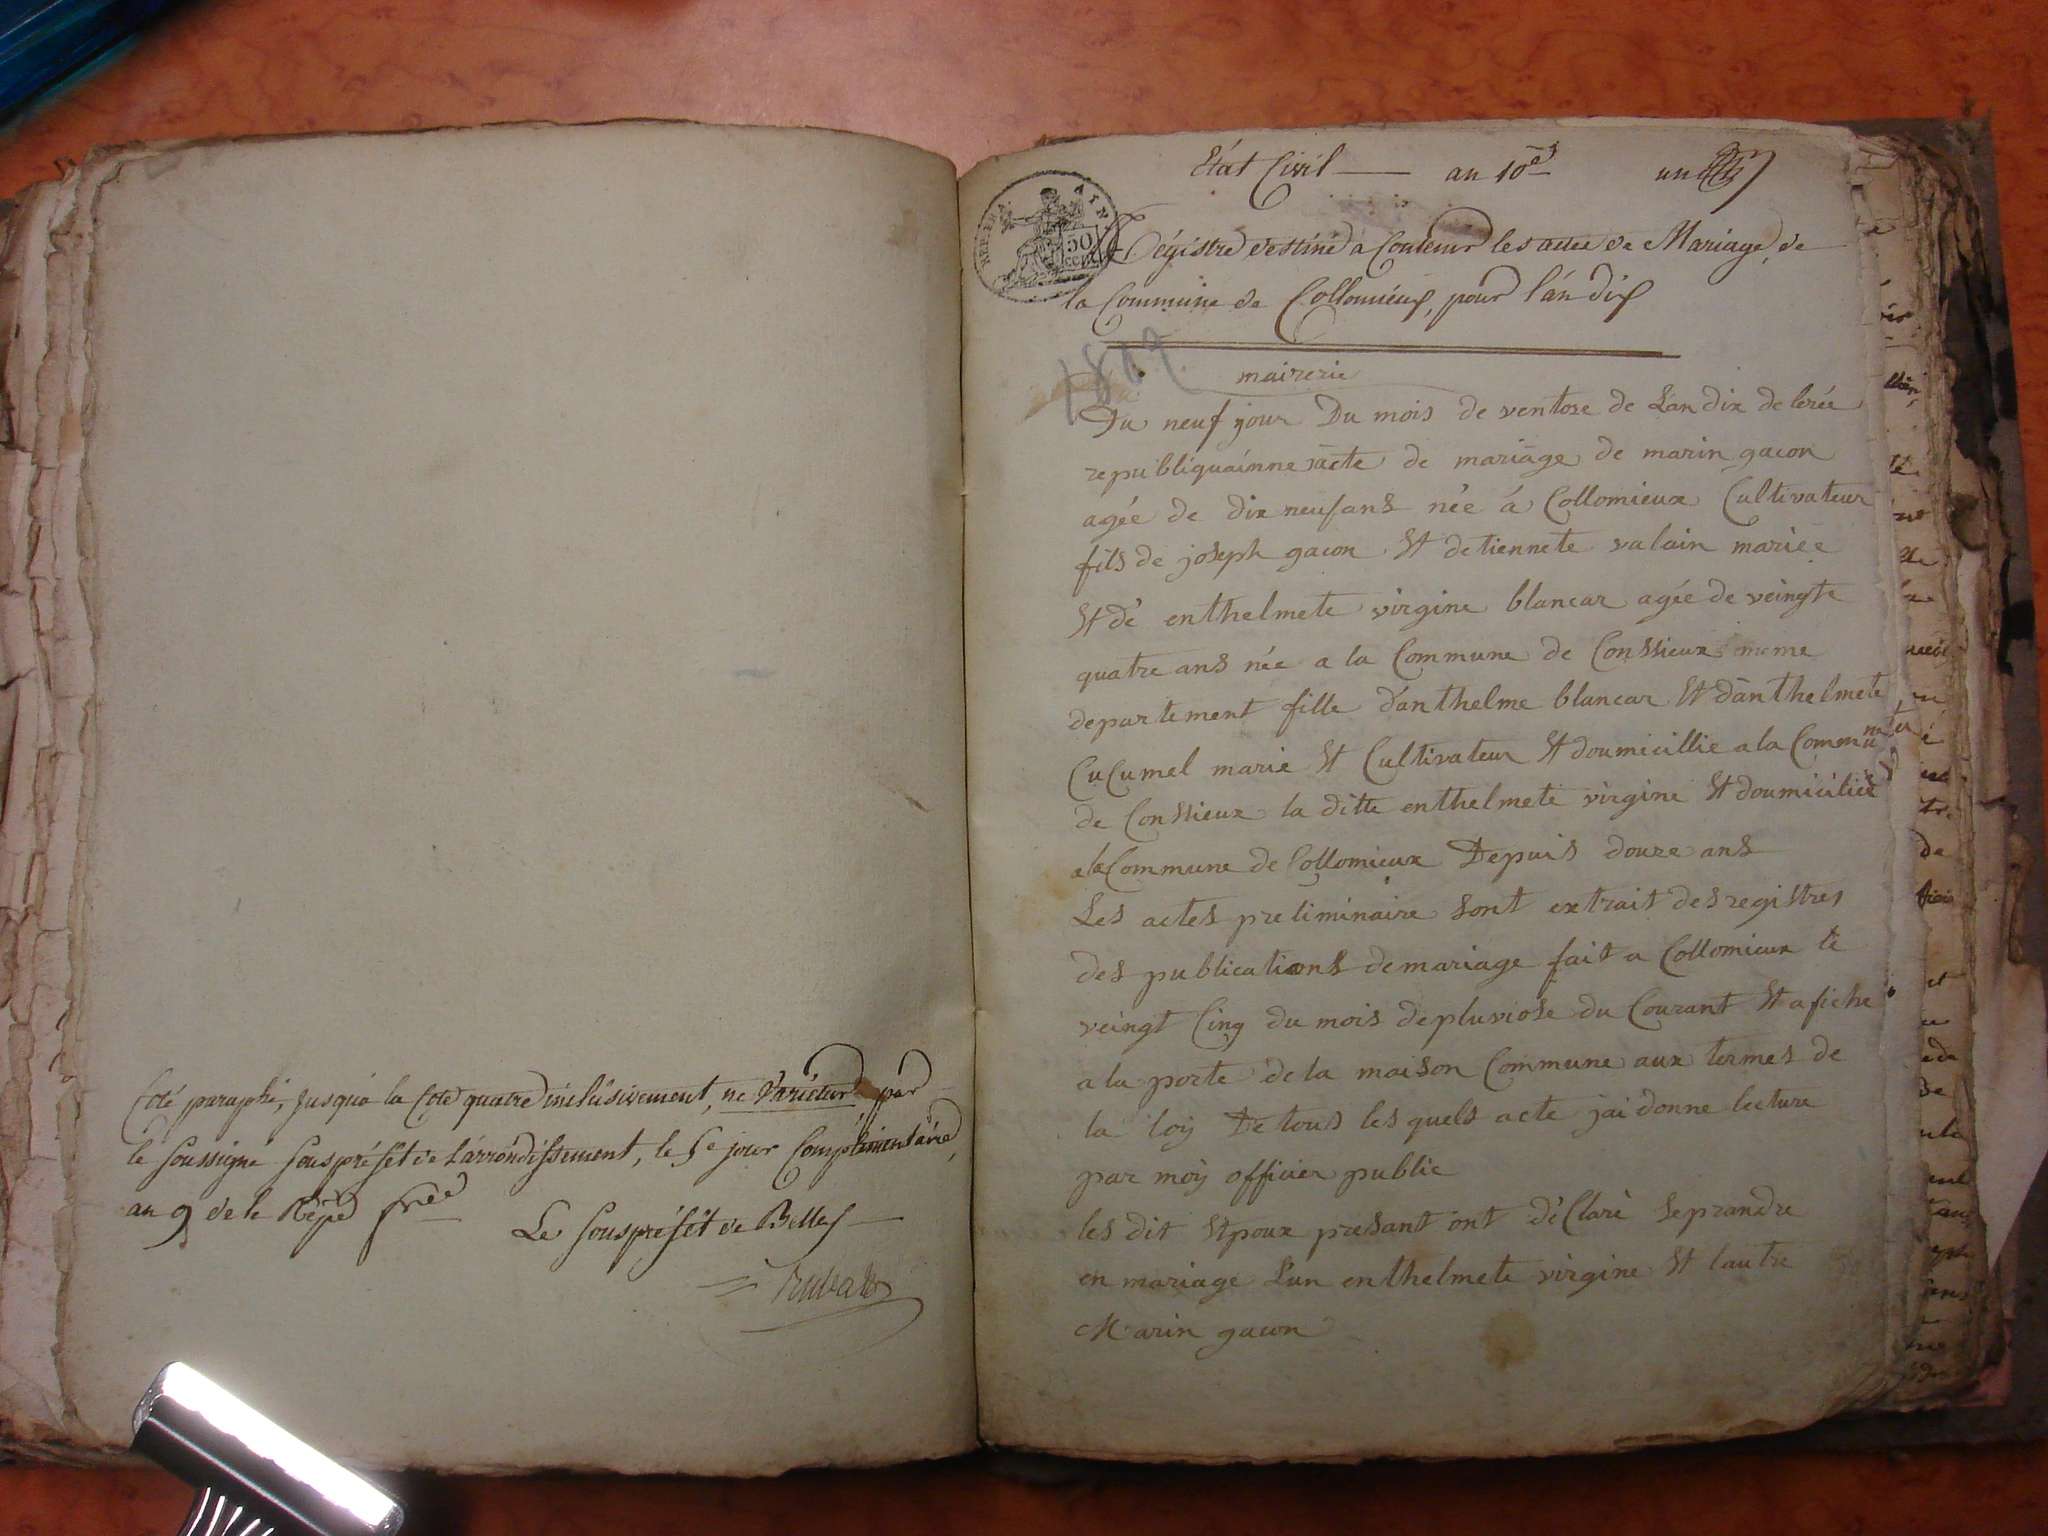 Coté paraphé, Jusqu'à la Cote quatre inclusivement, ne Varietur par
le soussigné souspréfet de l'arrondissement, le 5e jour Complémentaire,
an 9 de la Répe frse
Le souspréfet de Belley
Etát Civil — an 10e un
50
cen
Régistre destiné a Contenir les actes de Mariage, de
la Commune de Collomieux, pour l'an dix
mairerie
Du neuf jour Du mois de ventose de Lan dix de lerée
republiquainne acte de mariage de marin gacon
agée de dix neuf ans née á Collomieux Cultivateur
fils de joseph gacon Et detiennete valain mariée
Et dè enthelmete virgine blancar agée de veingte
quatre ans née a la Commune de Conssieux meme
departement fille danthelme blancar Et dànthelmete
CuCumel marie Et Cultivateur Et doumicillie a la Commune
de Conssieux la ditte enthelmete virgine Et doumiciliée
a la Commune de Collomieux Depuis douze ans
Les actes preliminaire sont extrait des registres
des publications de mariage fait a Collomieux le
veingt Cinq du mois de pluviose du Courant Et afiche
a la porte de la maison Commune aux termes de
la loÿ De tous les quels acte jai donne lecture
par moÿ officier public
les dit Epoux presant ont déClaré se prandre
en mariage Lun enthelmete virgine Et lautre
Marin gacon